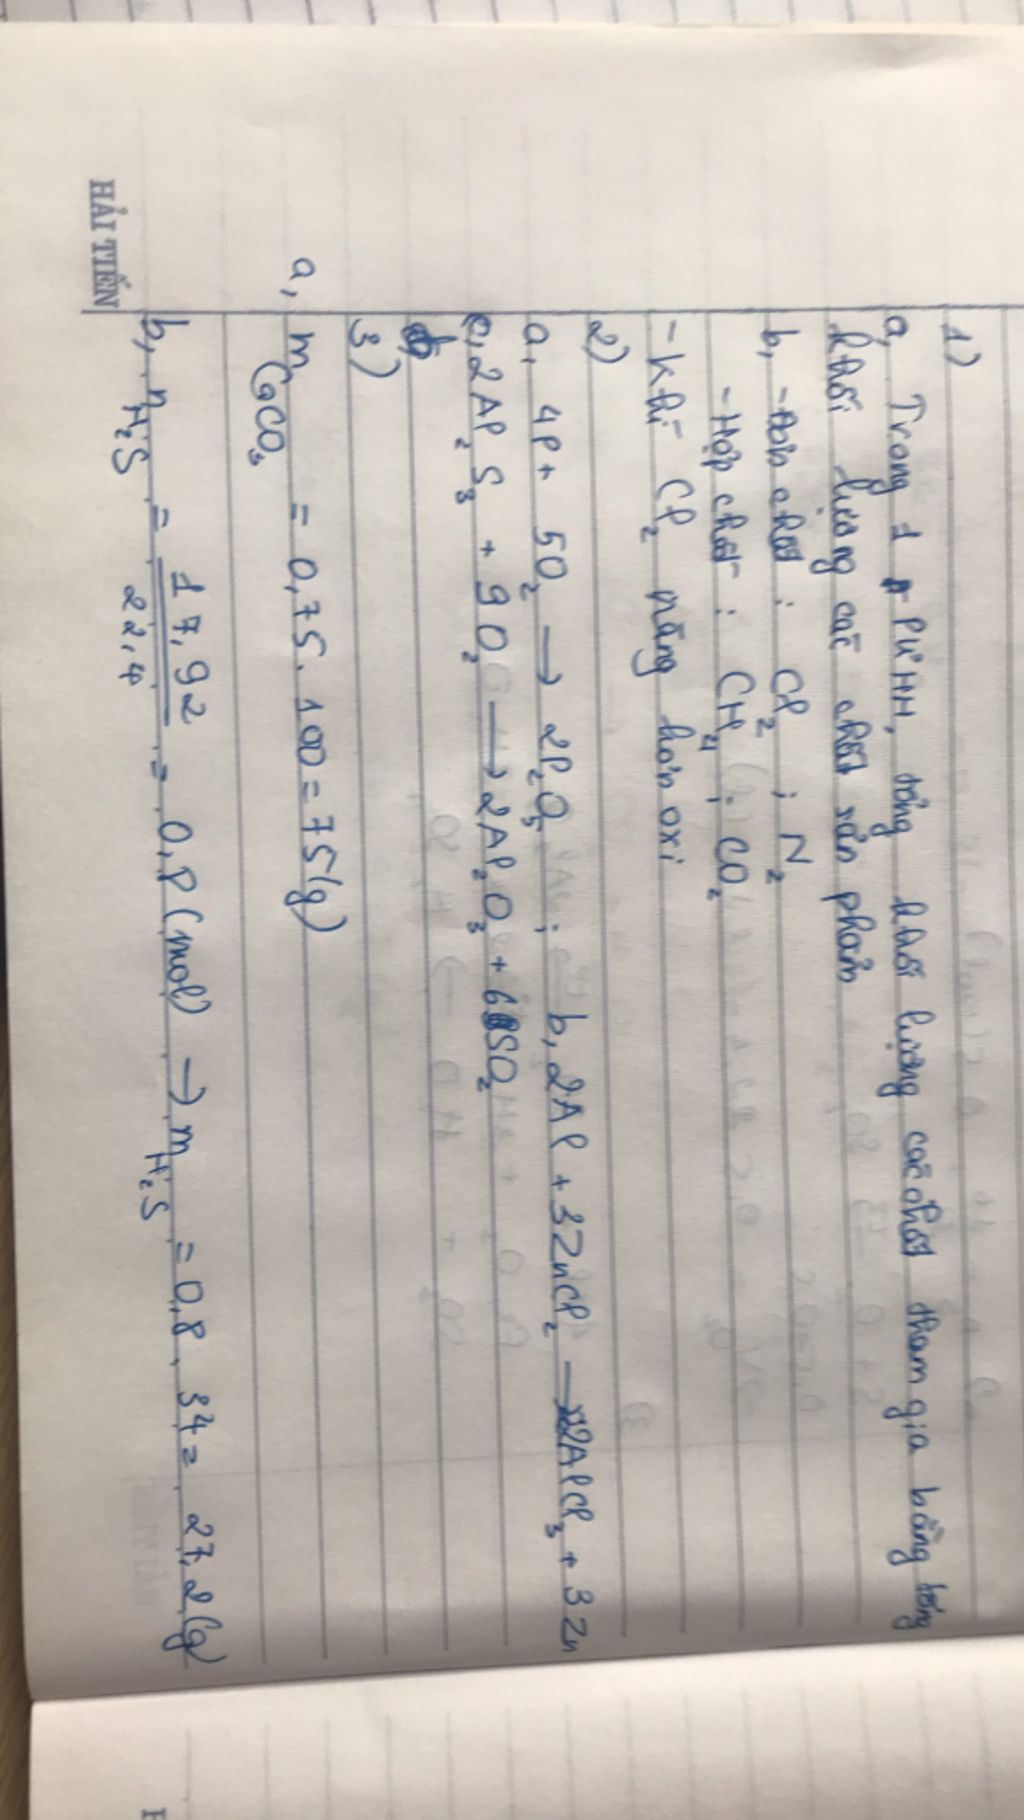 1)
a, Trong 1 PƯHH, tổng khối lượng các chất tham gia bằng tổng
khối lượng các chất sản phẩm
b, -Đơn chất : Cl₂ ; N₂
-Hợp chất : CH₄ ; CO₂
-Khí Cl₂ nặng hơn oxi
2)
a, 4P + 5O₂ → 2P₂O₅ ; b, 2Al + 3ZnCl₂ → 2AlCl₃ + 3Zn
c, 2Al₂S₃ + 9O₂ → 2Al₂O₃ + 6SO₂
3)
a, m CaCO₃ = 0,75.100 = 75(g)
b, n H₂S = 17,92/22,4 = 0,8(mol) → m H₂S = 0,8.34 = 27,2(g)
HẢI TIẾN